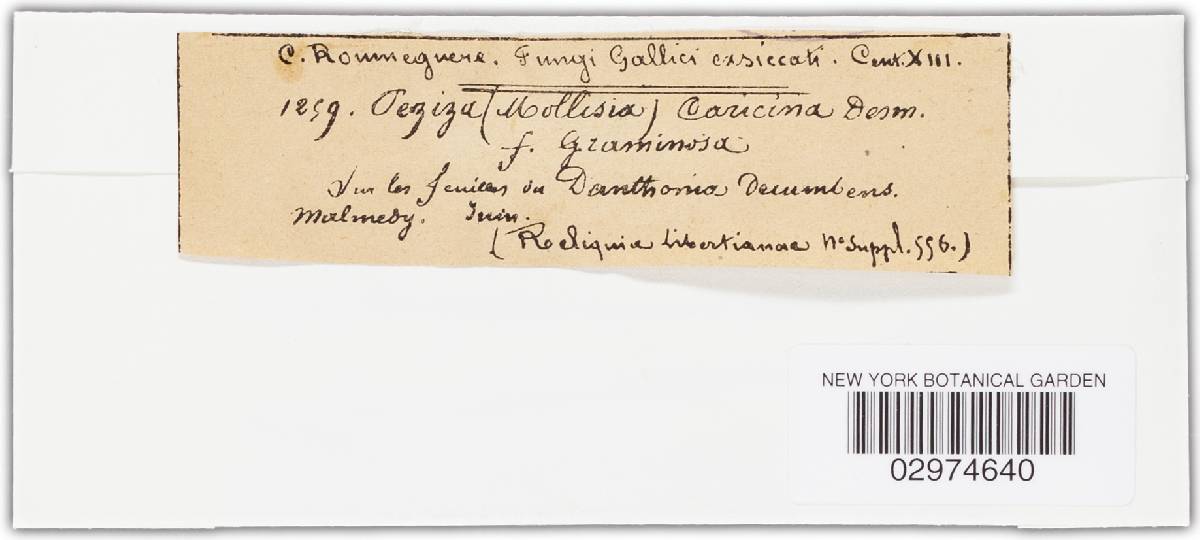 C. Roumeguere. Fungi Gallici exsiccati. Cent. XIII.
1259. Peziza (Mollisia) Caricina Desm.
f. Graminosa
Sur les feuilles du Danthonia Decumbens.
Malmedy. Juin.
(Reliquia Libertianae No Suppl. 556.)
NEW YORK BOTANICAL GARDEN
02974640